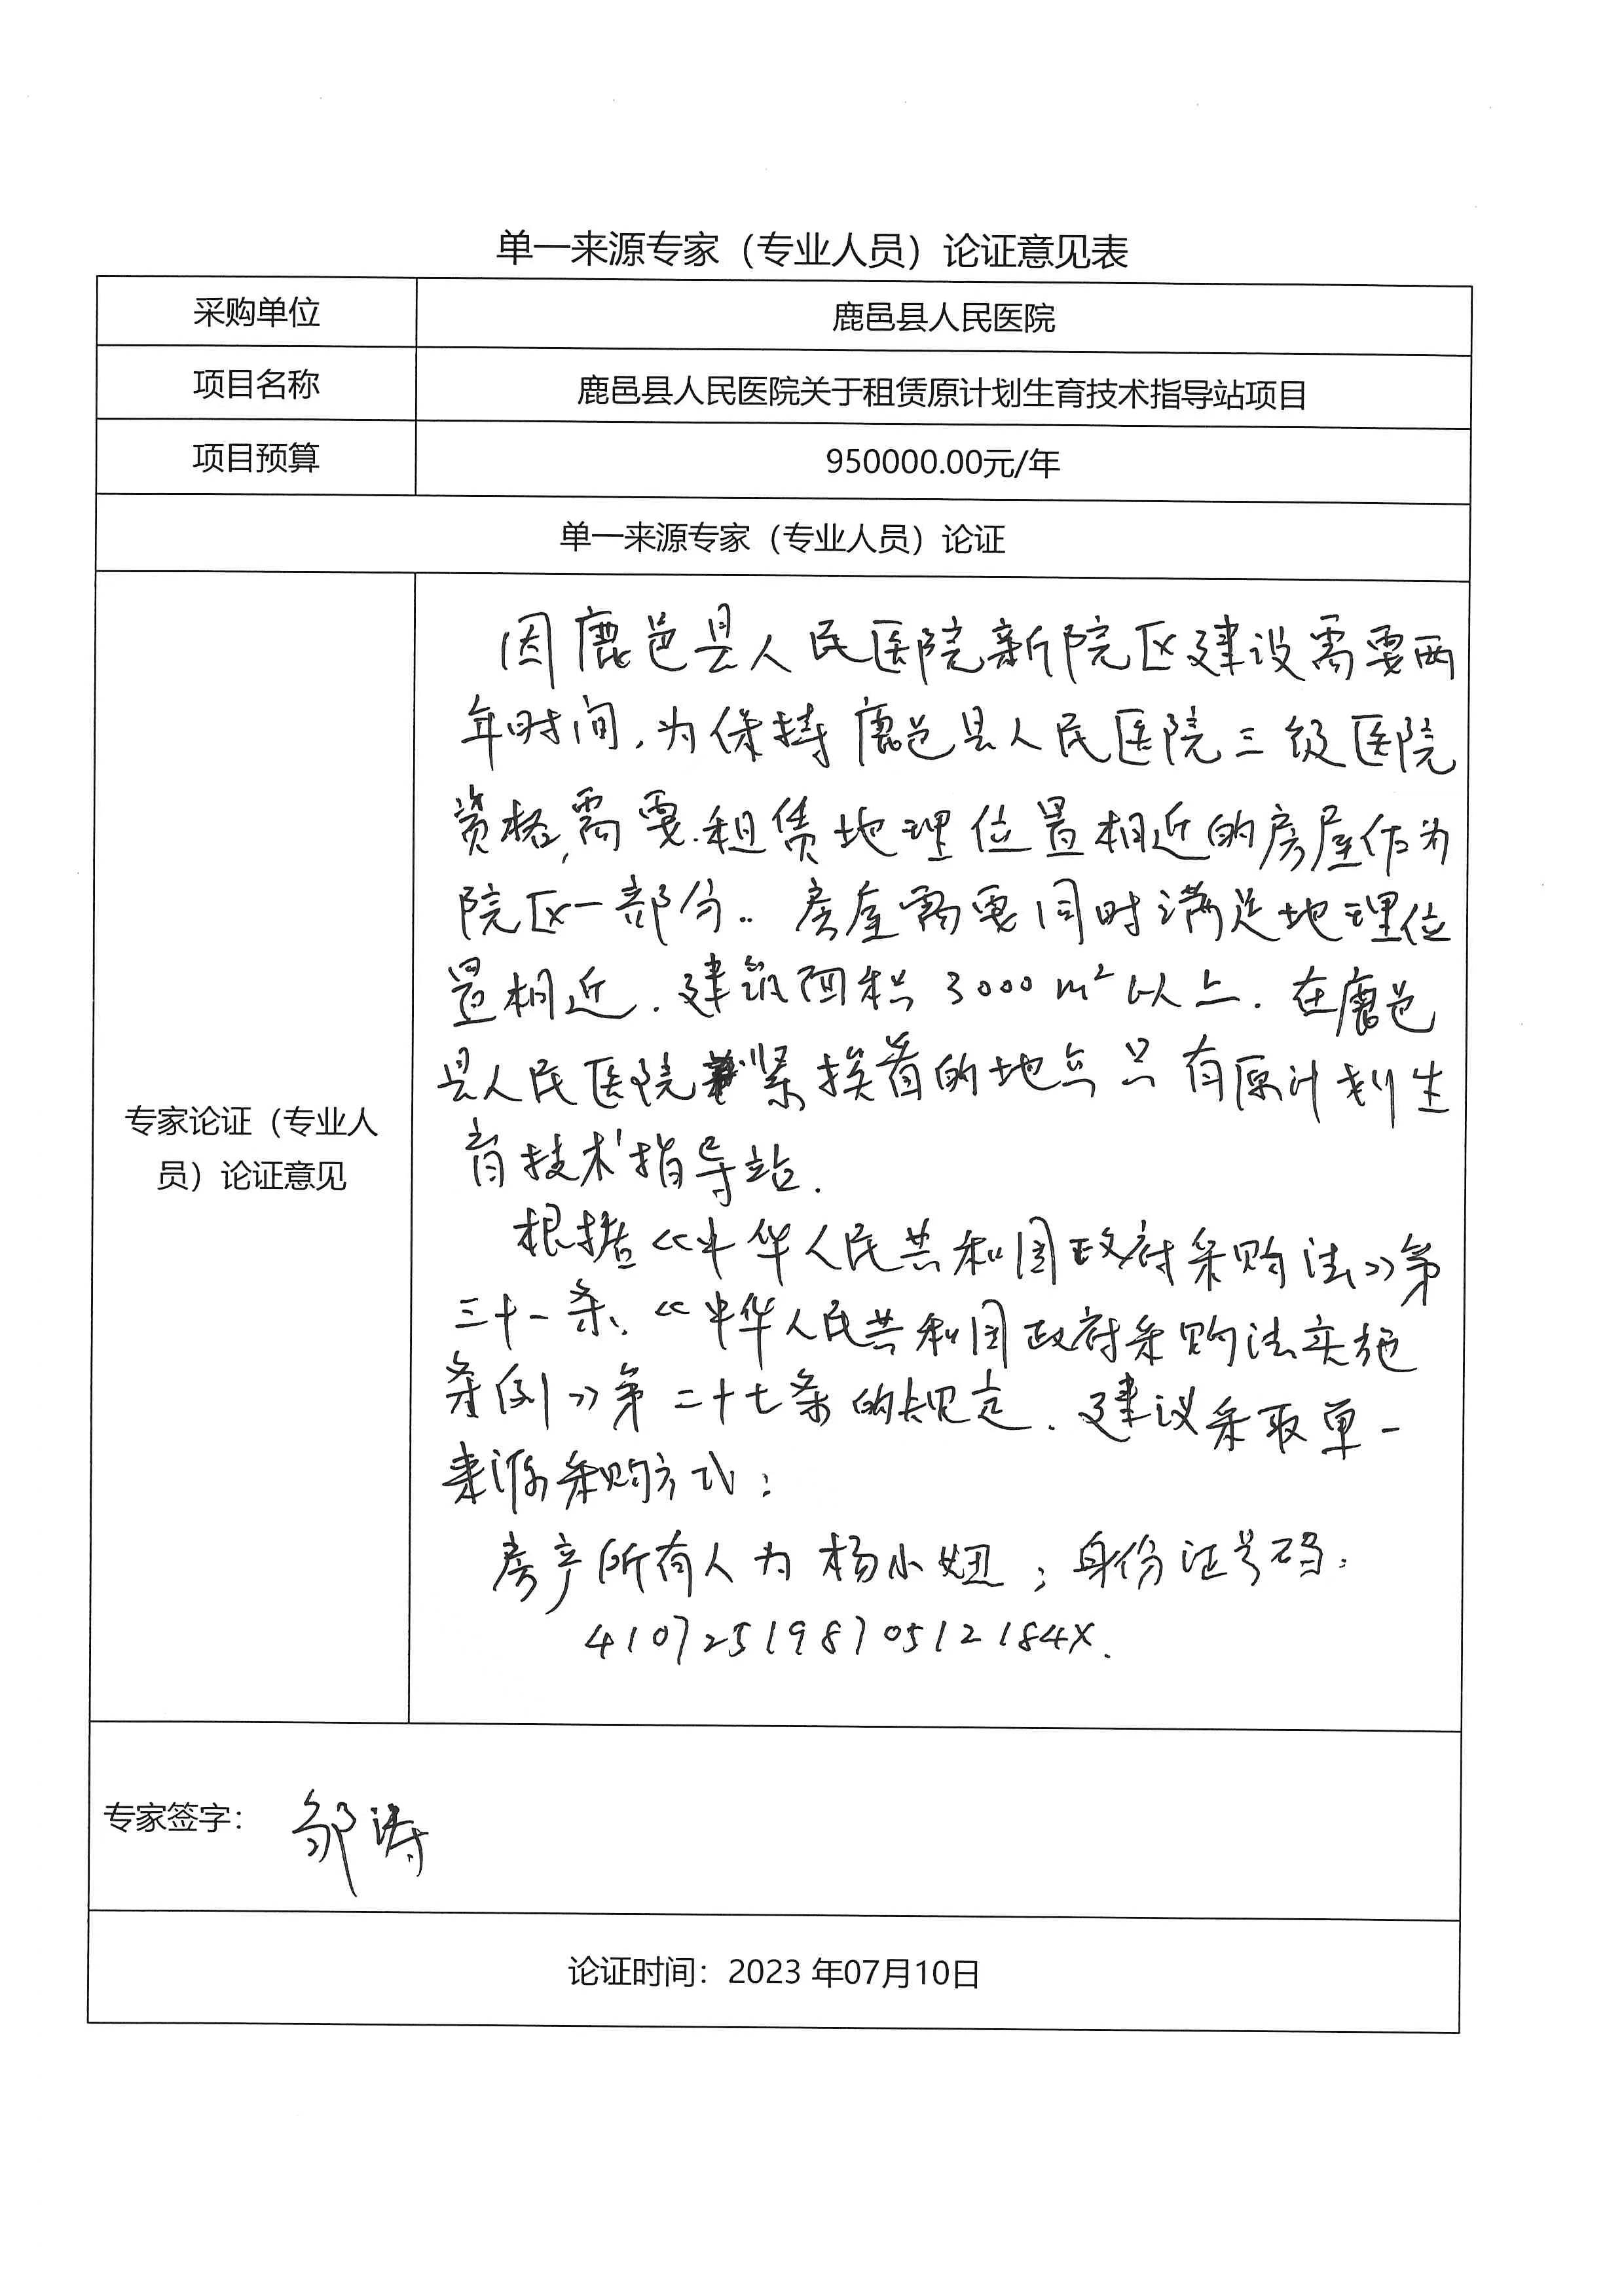 单一来源专家（专业人员）论证意见表
采购单位
鹿邑县人民医院
项目名称
鹿邑县人民医院关于租赁原计划生育技术指导站项目
项目预算
950000.00元/年
单一来源专家（专业人员）论证
专家论证（专业人
员）论证意见
因鹿邑县人民医院新院区建设需要两
年时间,为保持鹿邑县人民医院三级医院
资格,需要租赁地理位置相近的房屋作为
院区一部分..房屋需要同时满足地理位
置相近.建筑面积3000m²以上.在鹿邑
县人民医院紧挨着的地点只有原计划生
育技术指导站.
根据<<中华人民共和国政府采购法>>第
三十一条、<<中华人民共和国政府采购法实施
条例>>第二十七条的规定.建议采取单一
来源采购方式;
房产所有人为杨小妞;身份证号码:
41072519870512184X.
专家签字：邹涛
论证时间：2023 年07月10日